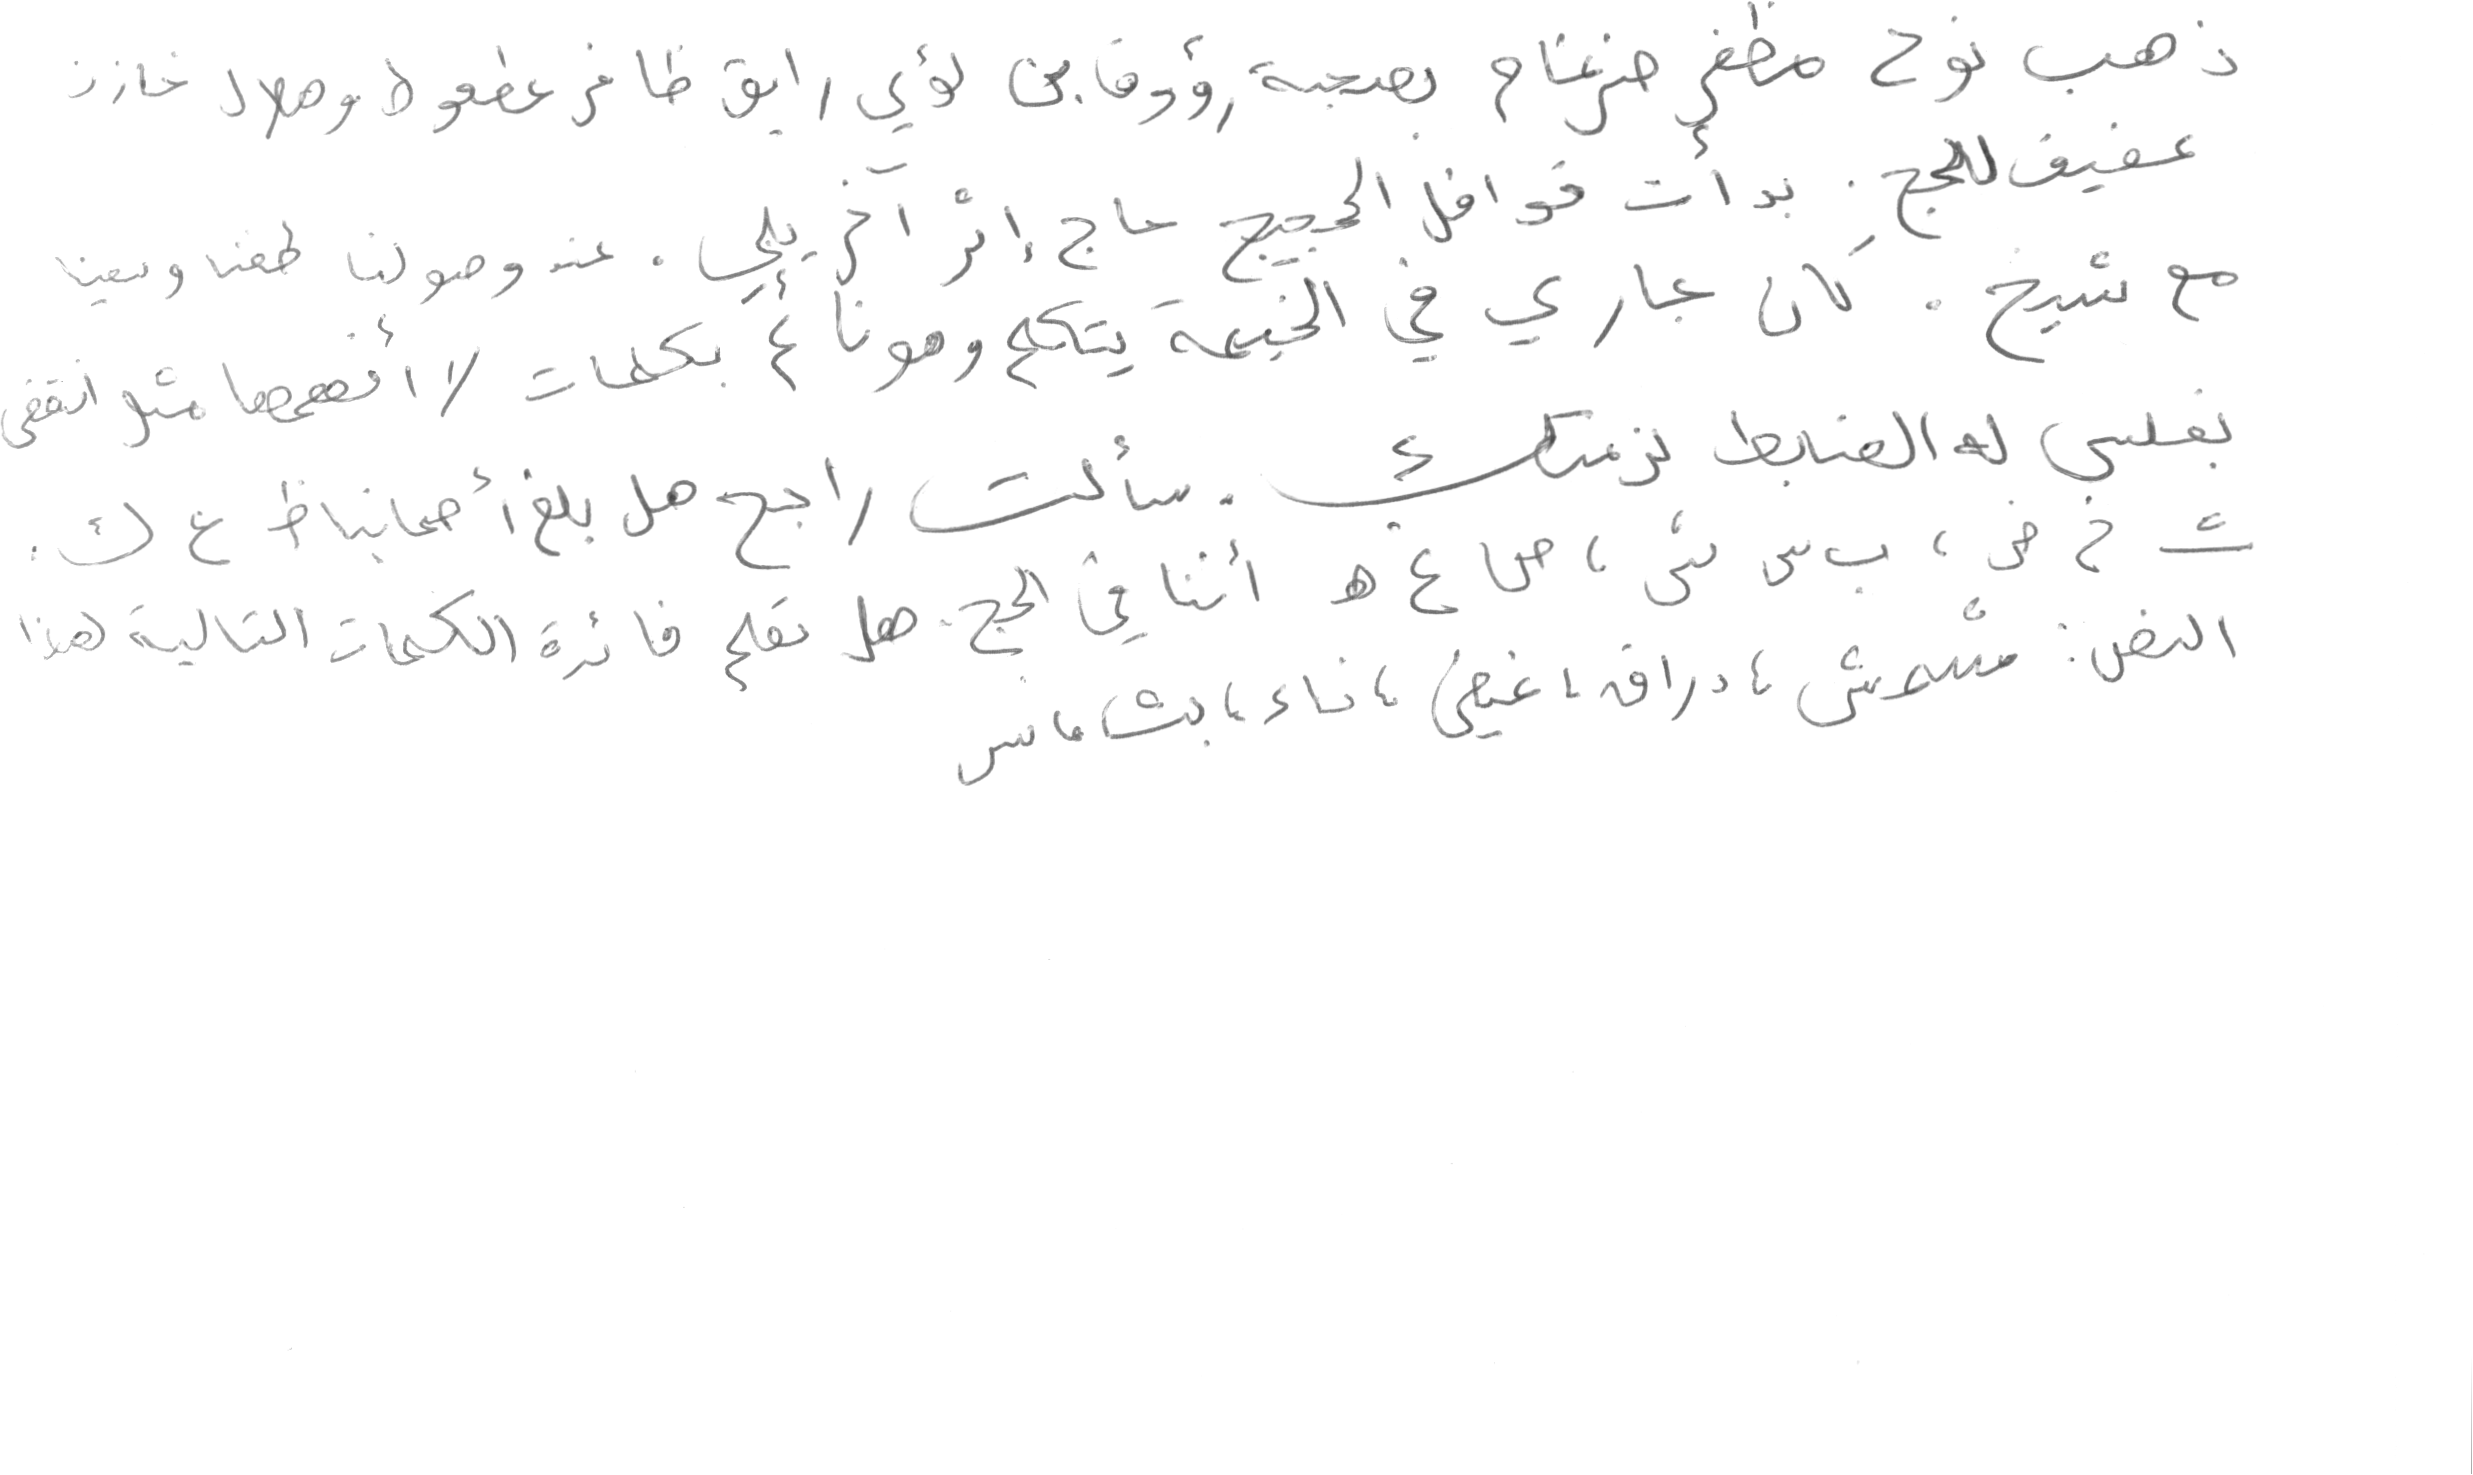 ذهب نوح مظفر ضرغام بصحبة رؤوف بن لؤي رايق ظافر عطعوط وهلال خازن
عفيف للحج. بدأت قوافل الحجيج ساج إثر آخر يلي. عند وصولنا طفنا وسعينا
مع شيخ. كان جاري في الخيمة يتكلم وهو نائم بكلمات لا أفهمها مثل انتقى
بغلس له الضابط نزمتك. سألت راجح هل بلغ أصحابنا ظ غ ك.
ث خ ض، ب س شئ، ص ع ه أثناء الحج. هل تعلم فائزة الكلمات التالية هذا
النص: مشمش، دراق، غيظ، ناء، بث، مس